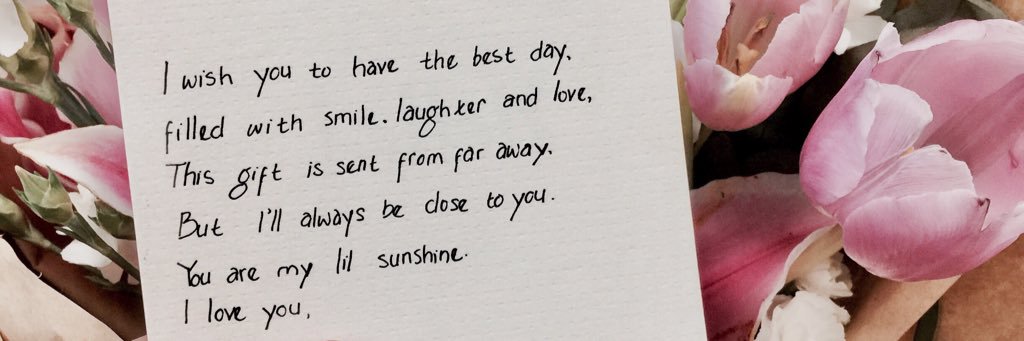 I wish you to have the best day.
filled with smile. laughter and love,
This gift is sent from far away.
But I'll always be close to you.
You are my lil sunshine.
I love you,